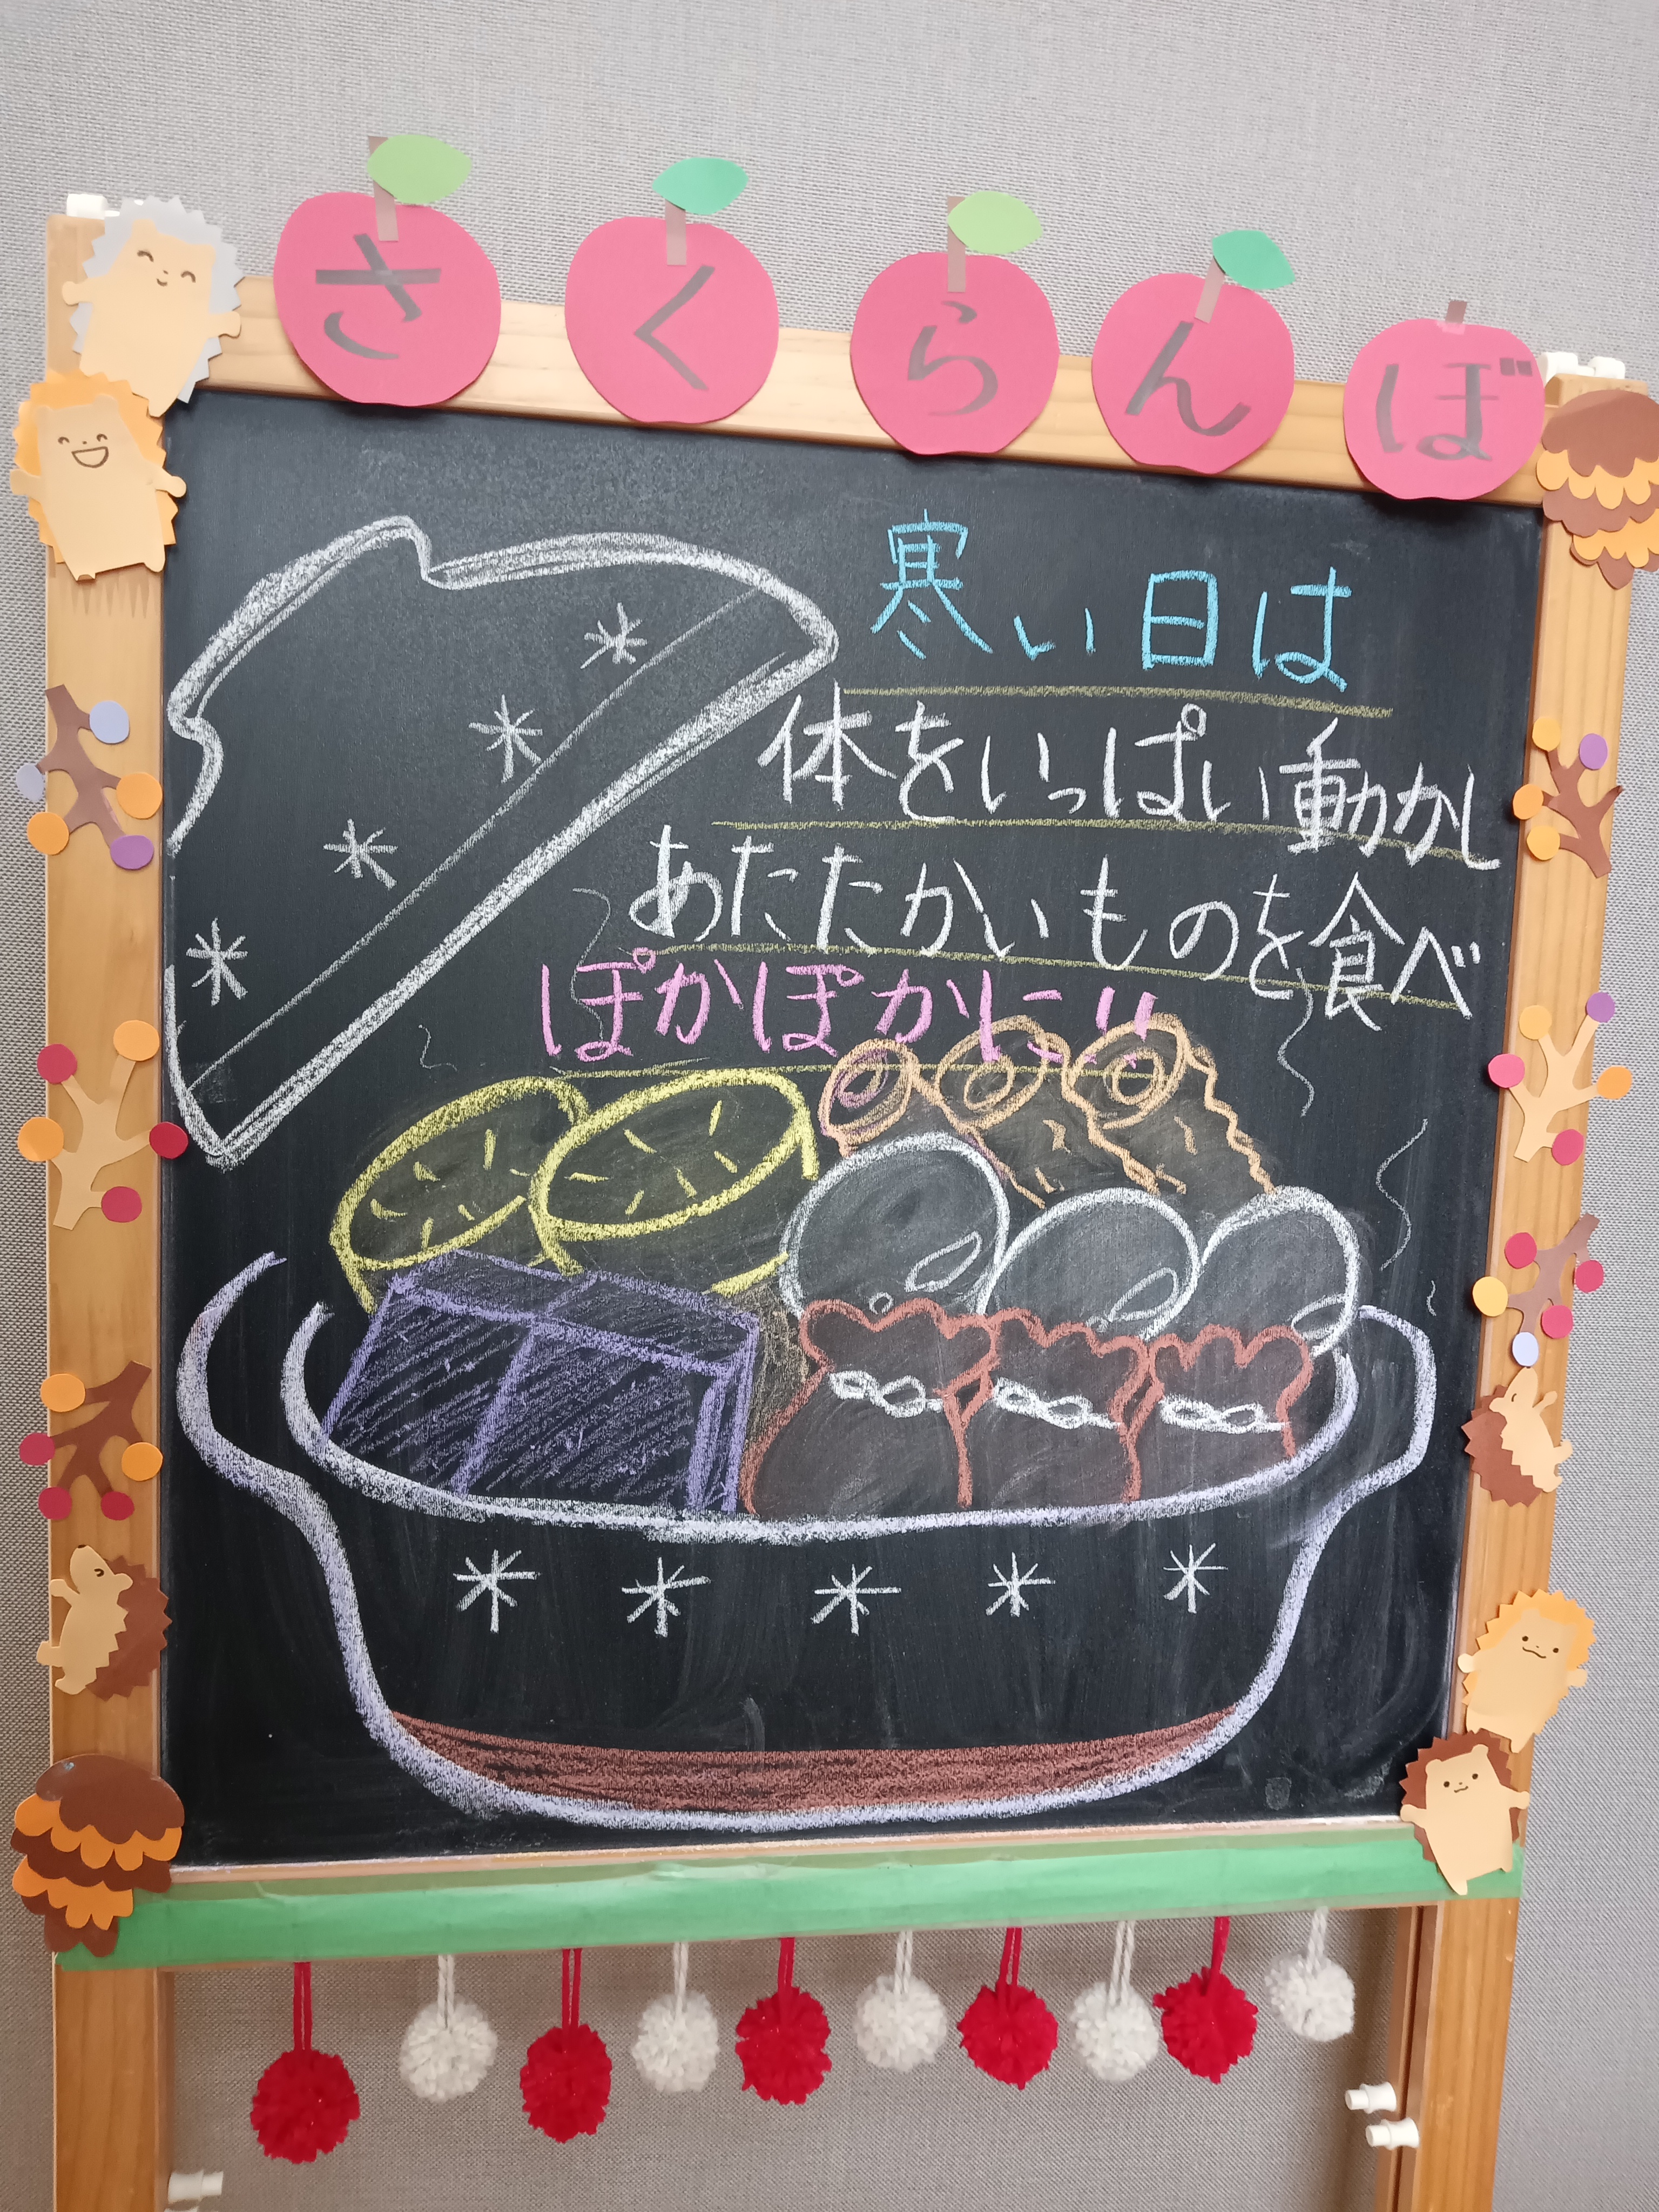 さくらんぼ
寒い日は
体をいっぱい動かし
あたたかいものを食べ
ぽかぽかに!!